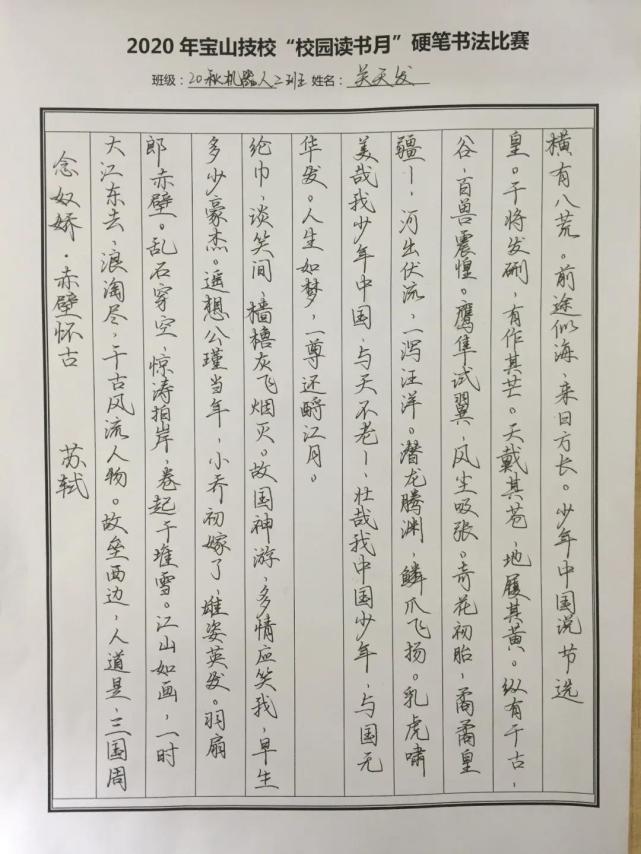 2020 年宝山技校“校园读书月”硬笔书法比赛
班级：20秋机器人二班 姓名：天发
念奴娇·赤壁怀古 苏轼
大江东去，浪淘尽，千古风流人物。故垒西边，人道是，三国周
郎赤壁。乱石穿空，惊涛拍岸，卷起千堆雪。江山如画，一时
多少豪杰。遥想公瑾当年，小乔初嫁了，雄姿英发。羽扇
纶巾，谈笑间，樯橹灰飞烟灭。故国神游，多情应笑我，早生
华发。人生如梦，一尊还酹江月。
美哉我少年中国，与天不老！壮哉我中国少年，与国无
疆！河出伏流，一泻汪洋。潜龙腾渊，鳞爪飞扬。乳虎啸
谷，百兽震惶。鹰隼试翼，风尘吸张。奇花初胎，矞矞皇
皇。干将发硎，有作其芒。天戴其苍，地履其黄。纵有千古，
横有八荒。前途似海，来日方长。少年中国说节选